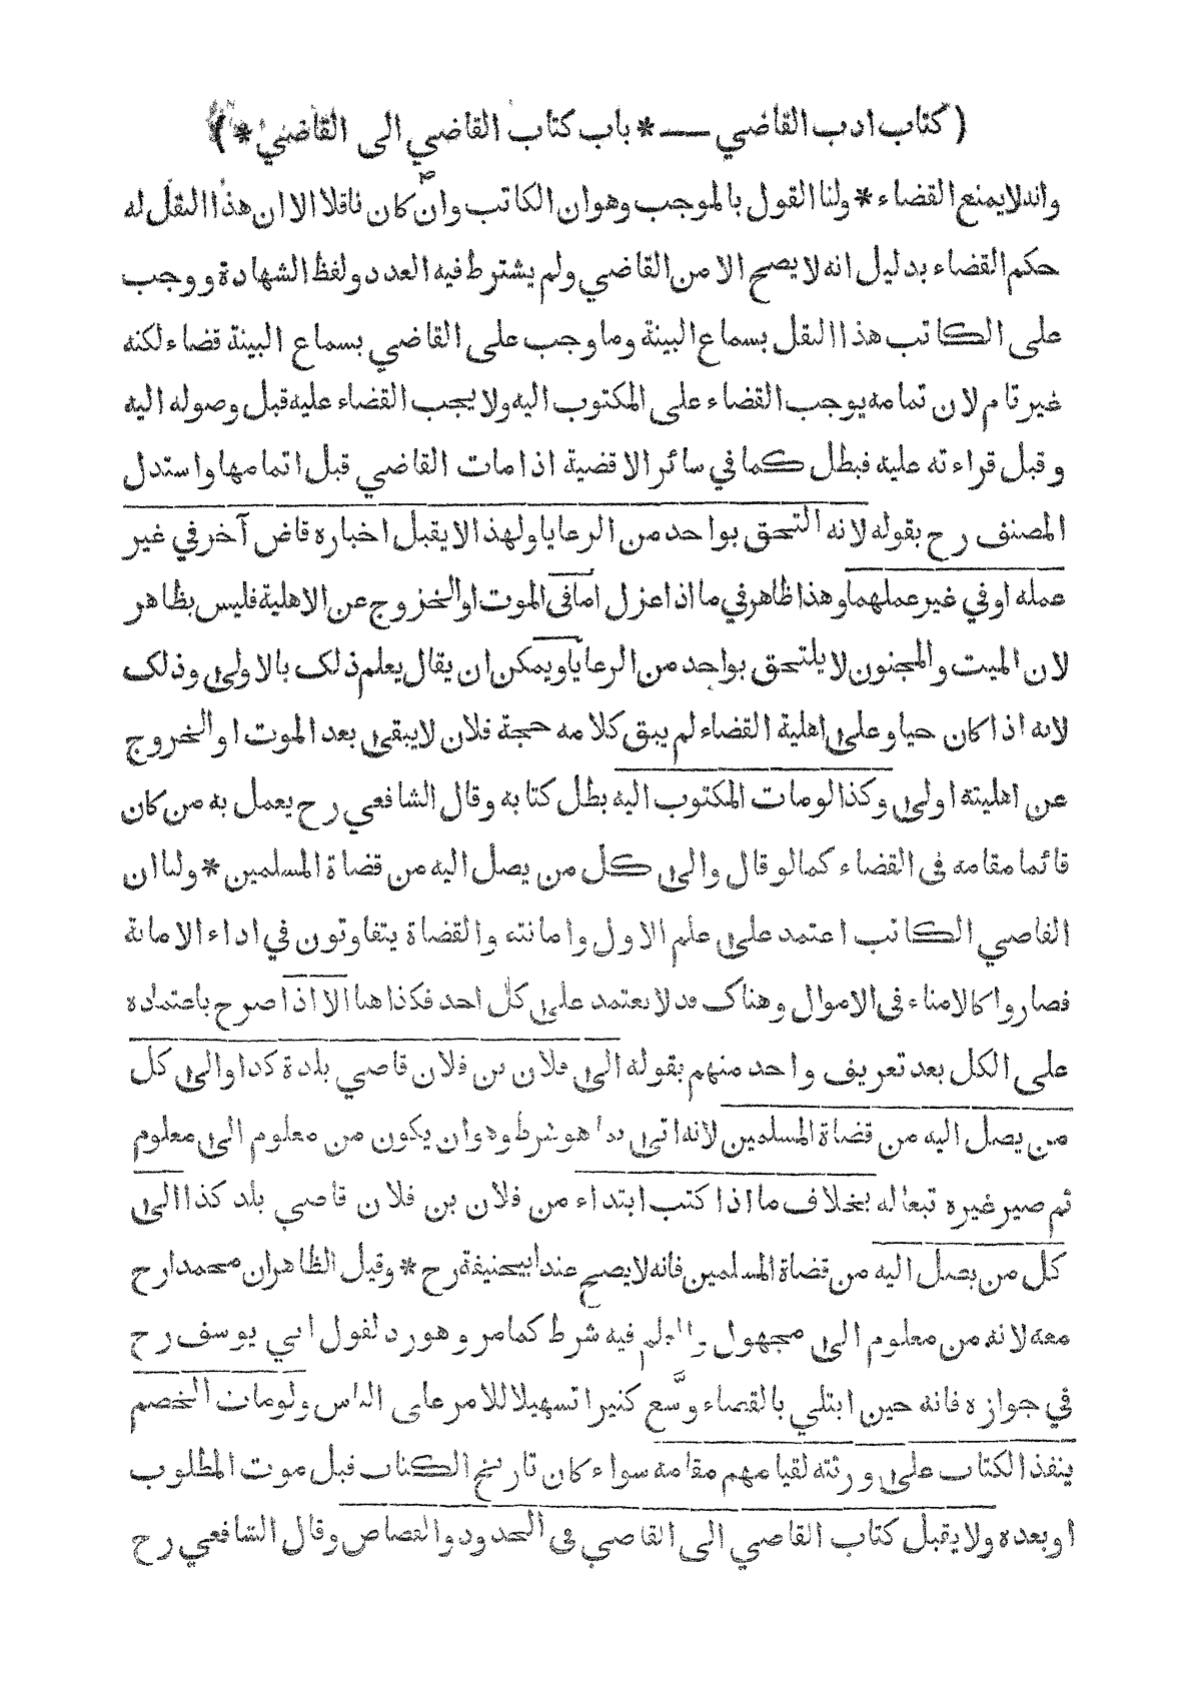 ( كتاب ادب القاضي — * باب كتاب القاضي الى القاضي * )
وانه لايمنع القضاء * ولنا القول بالموجب وهو ان الكاتب وان كان ناقلا الا ان هذا النقل له
حكم القضاء بدليل انه لا يصح الا من القاضي ولم يشترط فيه العدد ولفظ الشهادة ووجب
على الكاتب هذا النقل بسماع البينة وما وجب على القاضي بسماع البينة قضاء لكنه
غير تام لان تمامه يوجب القضاء على المكتوب اليه ولا يجب القضاء عليه قبل وصوله اليه
وقبل قراءته عليه فبطل كما في سائر الاقضية اذا مات القاضي قبل اتمامها واستدل
المصنف رح بقوله لانه التحق بواحد من الرعايا ولهذا لا يقبل اخباره قاض آخر في غير
عمله او في غير عملهما وهذا ظاهر في ما اذا عزل اما في الموت او الخروج عن الاهلية فليس بظاهر
لان الميت والمجنون لا يلتحق بواحد من الرعايا ويمكن ان يقال يعلم ذلك بالاولى وذلك
لانه اذا كان حيا وعلى اهلية القضاء لم يبق كلامه حجة فلان لا يبقى بعد الموت او الخروج
عن اهليته اولى وكذا لو مات المكتوب اليه بطل كتابه وقال الشافعي رح يعمل به من كان
قائما مقامه في القضاء كما لو قال والى كل من يصل اليه من قضاة المسلمين * ولنا ان
القاضي الكاتب اعتمد على علم الاول وامانته والقضاة يتفاوتون في اداء الامانة
فصاروا كالامناء في الاموال وهناك قد لا يعتمد على كل احد فكذا هنا الا اذا صرح باعتماده
على الكل بعد تعريف واحد منهم بقوله الى فلان بن فلان قاضي بلدة كذا والى كل
من يصل اليه من قضاة المسلمين لانه اتى بما هو شرط وهو ان يكون من معلوم الى معلوم
ثم صير غيره تبعا له بخلاف ما اذا كتب ابتداء من فلان بن فلان قاضي بلد كذا الى
كل من يصل اليه من قضاة المسلمين فانه لا يصح عند ابيحنيفة رح * وقيل الظاهر ان محمدا رح
معه لانه من معلوم الى مجهول والعلم فيه شرط كما مر وهو رد لقول ابي يوسف رح
في جوازه فانه حين ابتلي بالقضاء وسّع كثيرا تسهيلا للامر على الناس ولو مات الخصم
ينفذ الكتاب على ورثته لقيامهم مقامه سواء كان تاريخ الكتاب قبل موت المطلوب
او بعده ولا يقبل كتاب القاضي الى القاضي في الحدود والقصاص وقال الشافعي رح